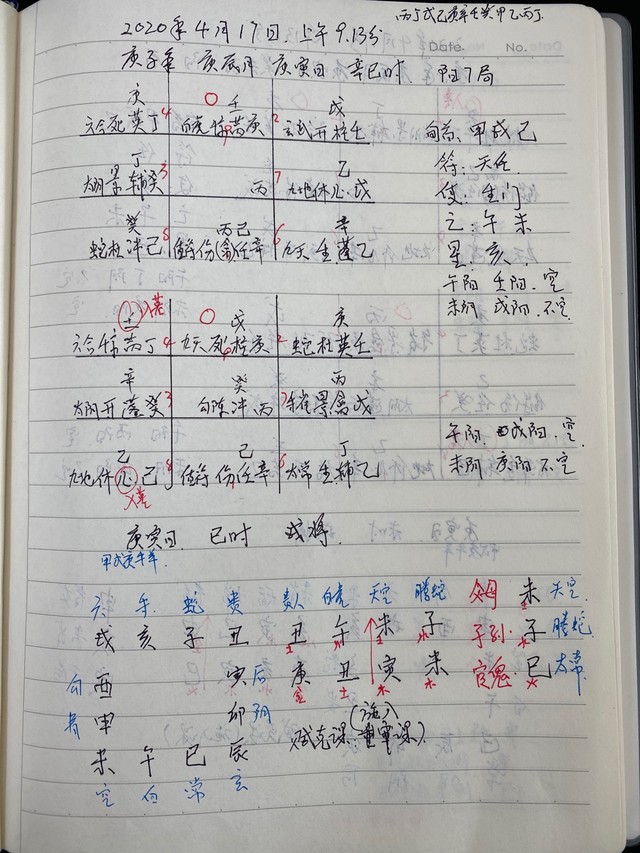 丙丁戊己庚辛壬癸甲乙丙丁
2020年4月17日.上午9.13分
Date. No.
庚子年 庚辰月 庚寅日 辛巳时 阳7局
庚 壬 戊
六合死英丁 4 9 庚 玄武开柱壬 2
旬首:甲戌己
丁 乙
太阴景辅癸 3 丙 7 九地休心戊
符:天任
使:生门
癸 丙己 辛
蛇杜冲己 8 值符伤(禽)任辛 6 九天生蓬乙
空:午未
星:亥
午阳 壬阳.空
未阴 戊阳.不空
戊 庚
4 九天死柱庚 2 蛇杜英壬
辛 癸 丙
太阴开蓬癸 3 勾陈冲丙 7 朱雀景禽戊
午阳.戌阳.空
乙 己 丁
九地休心己 8 值符伤任辛 6 太常生辅乙
入墓
未阴 庚阳 不空
庚寅日 巳时 戌将
甲戌庚牛羊
六 朱 蛇 贵 贵人 白虎 天空 腾蛇 父母 未 天空
戌 亥 子 丑 丑 午 未 子 子孙 子 腾蛇
土 火 土 水 土 水
勾 酉 寅 后 庚 丑 寅 未 官鬼 巳 太常
金 土 木 火
青 申 卯 阴 贼克课:(重审课)
未 午 巳 辰
空 白 常 玄